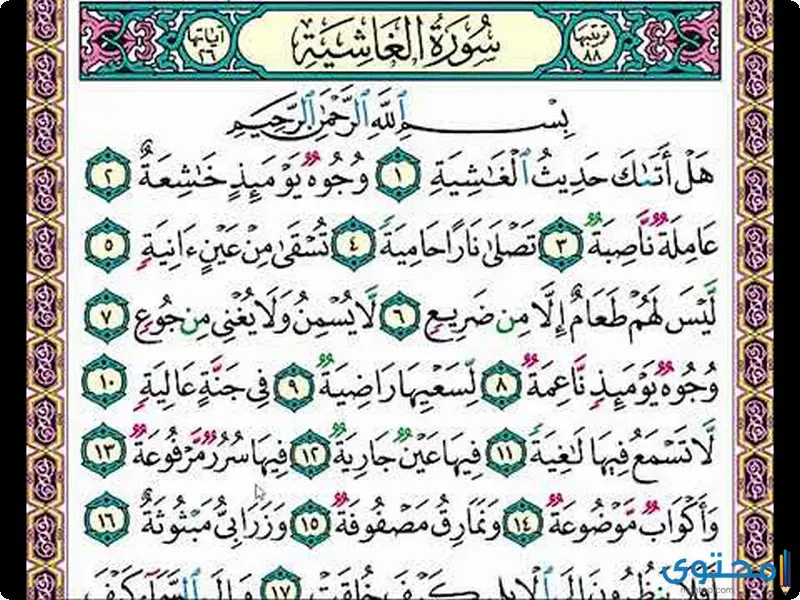 ترتيبها ٨٨ سُورَةُ الغَاشِيَةِ آياتها ٢٦
بِسْمِ ٱللَّهِ ٱلرَّحْمَٰنِ ٱلرَّحِيمِ
هَلْ أَتَىٰكَ حَدِيثُ ٱلْغَٰشِيَةِ ١ وُجُوهٌ يَوْمَئِذٍ خَٰشِعَةٌ ٢
عَامِلَةٌ نَّاصِبَةٌ ٣ تَصْلَىٰ نَارًا حَامِيَةً ٤ تُسْقَىٰ مِنْ عَيْنٍ ءَانِيَةٍ ٥
لَّيْسَ لَهُمْ طَعَامٌ إِلَّا مِن ضَرِيعٍ ٦ لَّا يُسْمِنُ وَلَا يُغْنِى مِن جُوعٍ ٧
وُجُوهٌ يَوْمَئِذٍ نَّاعِمَةٌ ٨ لِّسَعْيِهَا رَاضِيَةٌ ٩ فِى جَنَّةٍ عَالِيَةٍ ١٠
لَّا تَسْمَعُ فِيهَا لَٰغِيَةً ١١ فِيهَا عَيْنٌ جَارِيَةٌ ١٢ فِيهَا سُرُرٌ مَّرْفُوعَةٌ ١٣
وَأَكْوَابٌ مَّوْضُوعَةٌ ١٤ وَنَمَارِقُ مَصْفُوفَةٌ ١٥ وَزَرَابِىُّ مَبْثُوثَةٌ ١٦
أَفَلَا يَنظُرُونَ إِلَى ٱلْإِبِلِ كَيْفَ خُلِقَتْ ١٧ وَإِلَى ٱلسَّمَآءِ كَيْفَ
محتوى